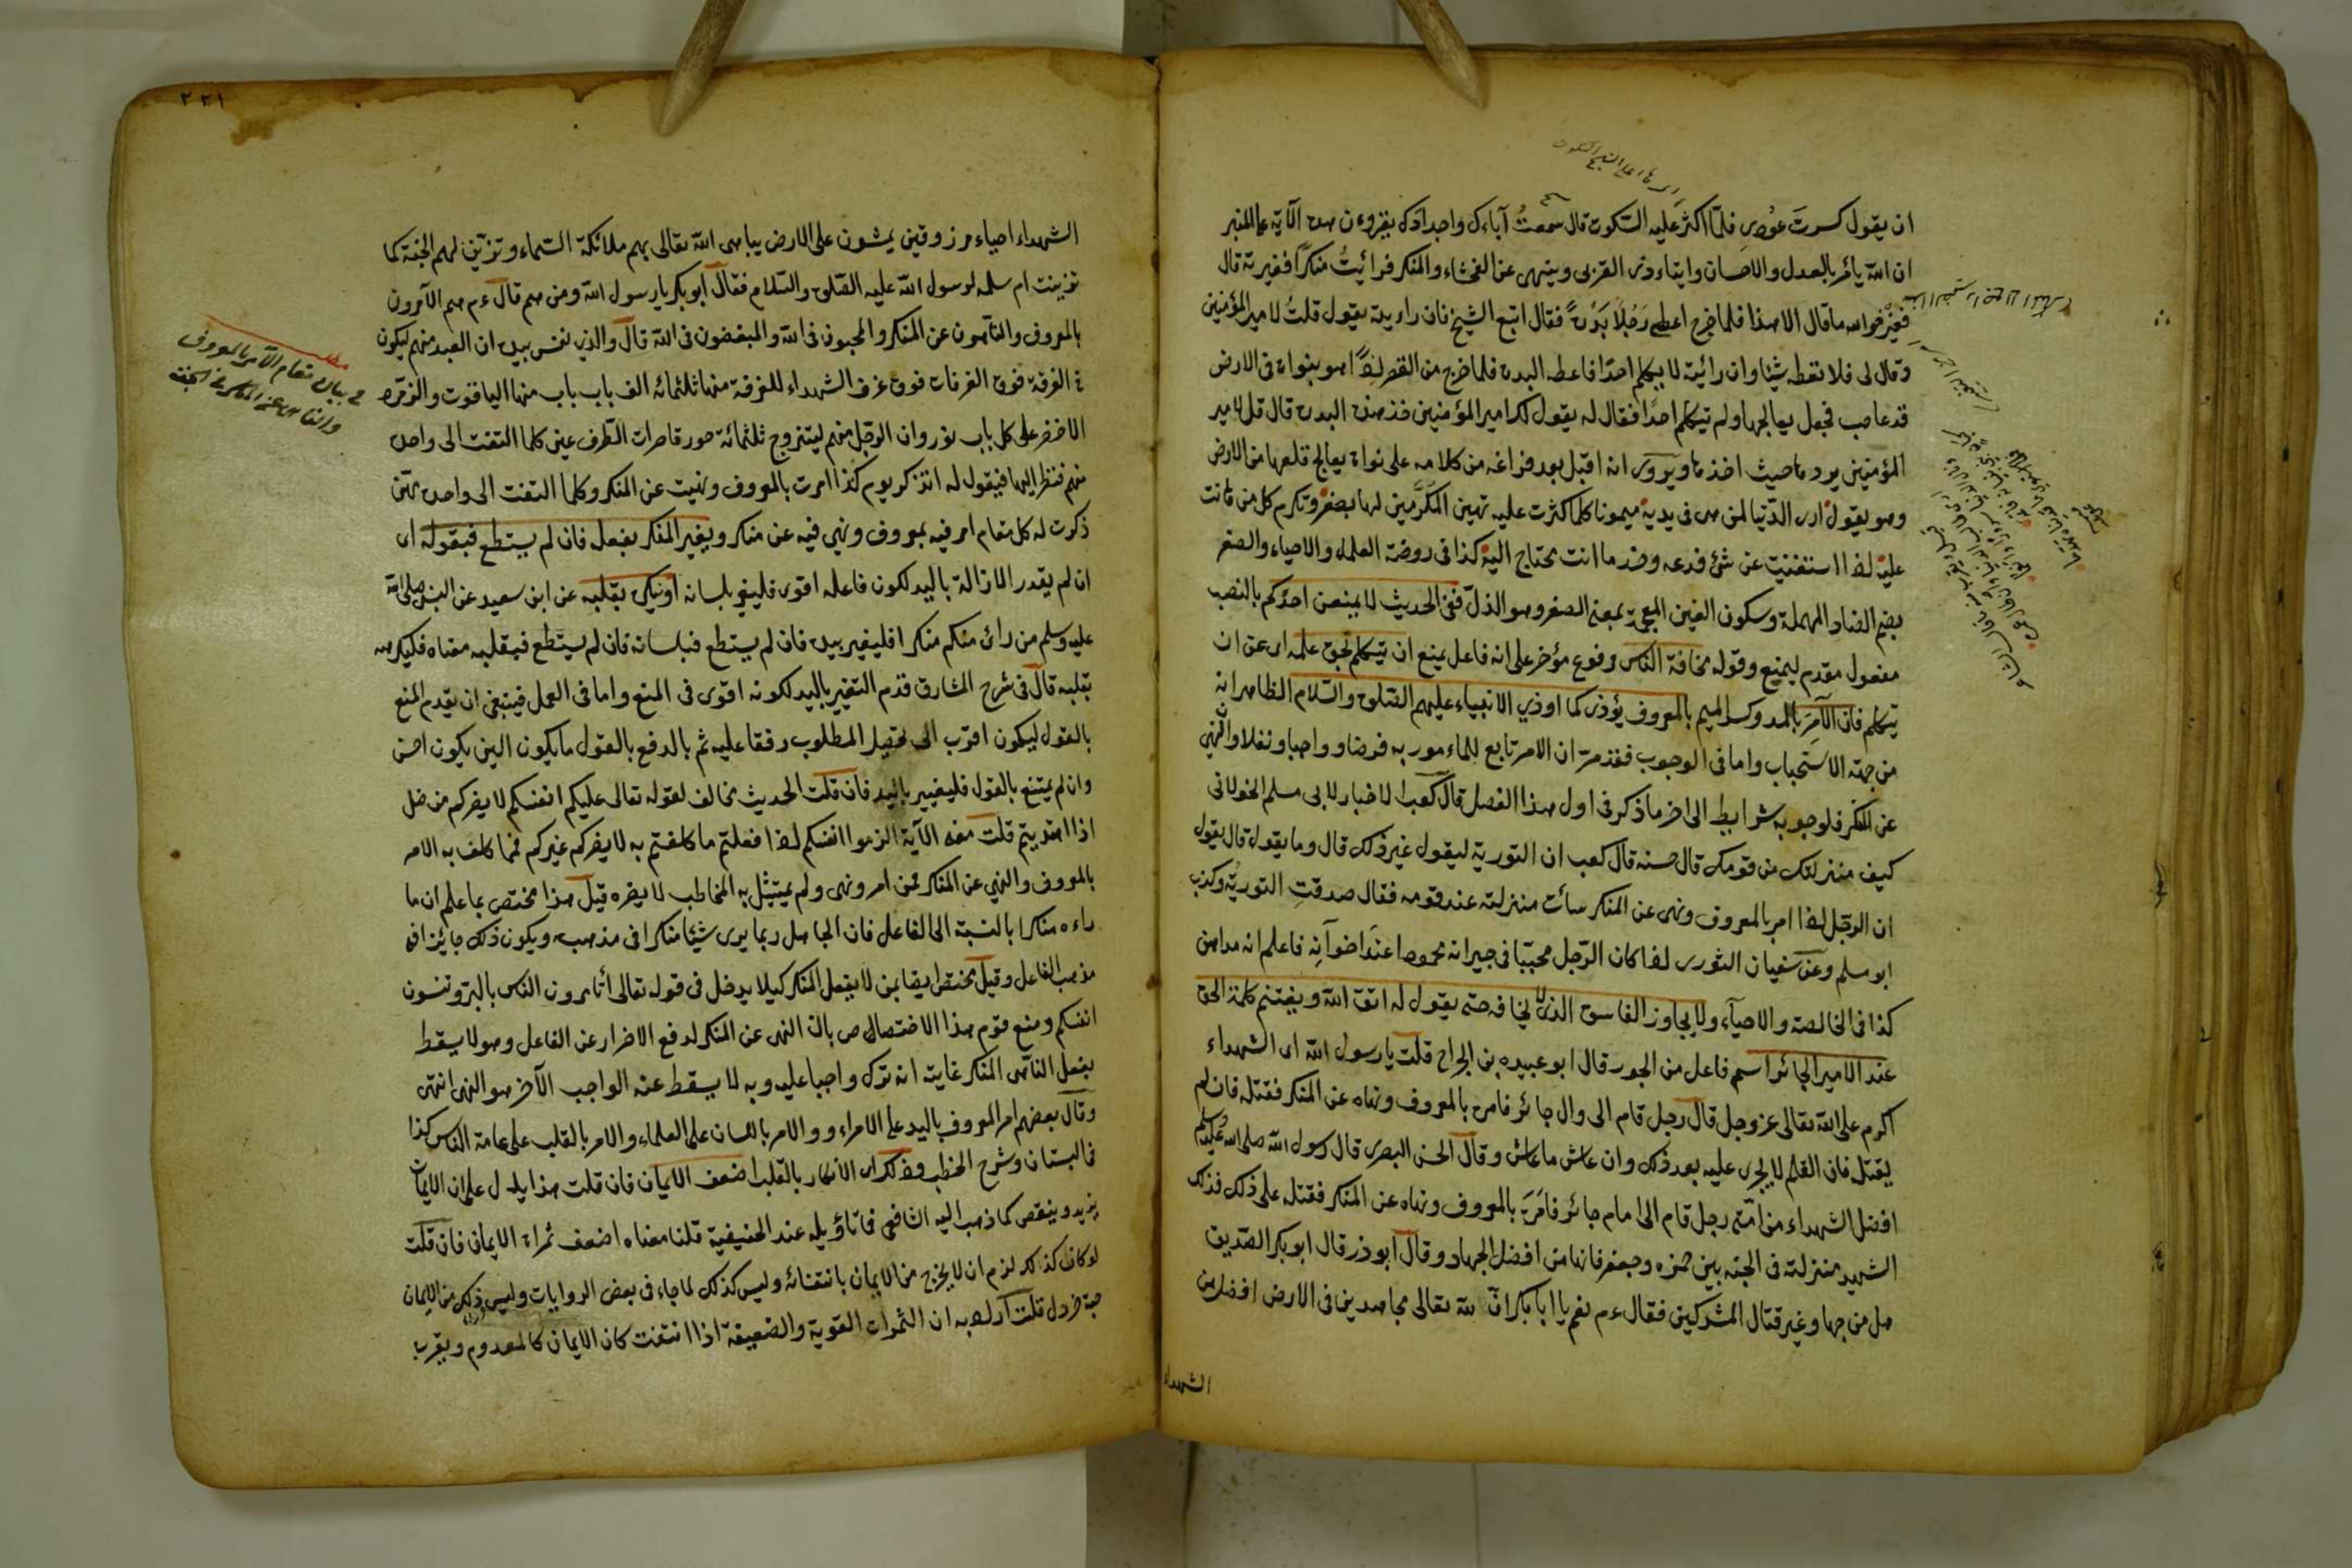 ان يقول كسرت عودي فلما اكثر عليه السكوت قال سمعتُ آباءك واجدادك يقرؤن هذه الآية على المنبر
ان الله يأمر بالعدل والاحسان وايتاء ذى القربى وينهى عن الفحشاء والمنكر فرائيتُ منكرًا فغيرته قال
فغيره فوالله ما قال الا هذا فلما خرج اعطى رَجُلًا بَدْرةً فقال اتبع الشيخ فان رايته يقول قلتُ لامير المؤمنين
وقال لى فلا تعطه شيئا وان رائيته لا يكلم احدًا فاعطه البدره فلما خرج من القصر اذًا هو بنواة فى الارض
قد غاصت فجعل يعالجها ولم يتكلم احدًا فقال له يقول لك امير المؤمنين خذ هذه البدره قال قل لامير
المؤمنين يردها حيث اخذها ويروى انه اقبل بعد فراغه من كلامه على نواة يعالج قلعها من الارض
وهو يقول ارى الدّنيا لمن هى فى يديه هموما كلما كثرت عليه تهين المكرمين لها بصغر وتكرم كل من هانت
عليه اذا استغنيت عن شئ فدعه وخذ ما انت محتاج اليه كذا فى روضة العلماء والاحياء والصغر
بضم الصاد المهملة وسكون الغين المعجمة بمعنى الصغر وهو الذلّ ففى الحديث لا يمنعن احدكم بالنصب
مفعول مقدم ليمنع وقوله مخافة الناس مرفوع مؤخر على انه فاعل يمنع ان يتكلم بحق علمه اى عن ان
يتكلم فان الآمِرَ بالمد وكسر الميم بالمعروف يؤذى كما اوذي الانبياء عليهم الصّلوة والسّلام الظاهر انه
من جهة الاستحباب واما فى الوجوب فقد مرّ ان الامر تابع للمامور به فرضا وواجبا ونفلا والنّهى
عن المنكر فلوجوبه شرايط الى اخر ما ذكر فى اول هذا الفصل قال كعب الاخبار لابى مسلم الخولانى
كيف منزلتك من قومك قال حسنه قال كعب ان التورية ليقول غير ذلك قال وما يقول قال يقول
ان الرجل اذا امر بالمعروف ونهى عن المنكر سائت منزلته عند قومه فقال صدقتِ التورية وكذب
ابو مسلم وعن سفيان الثورى اذا كان الرّجل محببّا فى جيرانه محمودا عند اخوآنِه فاعلم انه مداهن
كذا فى الخالصة والاحيآء ولا يجاوز الفاسق الذى لا يخافه حتى يقول له اتق الله ويغتنم كلمة الحق
عند الامير الجائر اسم فاعل من الجور قال ابو عبيده بن الجراح قلت يا رسول الله اى الشهداء
اكرم على الله تعالى عز وجل قال رجل قام الى وال جائر فامره بالمعروف ونهاه عن المنكر فقتله فان لم
يقتله فان القلم لا يجرى عليه بعد ذلك وان عاش ما عاش وقال الحسن البصرى قال رسول الله صلى الله عليه وسلم
افضل الشهداء من امّتى رجل قام الى امام جائر فامَرَه بالمعروف ونهاه عن المنكر فقتله على ذلك فذلك
الشهيد منزلته فى الجنه بين حمزه وجعفر فانها من افضل الجهاد وقال ابو ذر قال ابو بكر الصّديق
هل من جهاد غير قتال المشركين فقال ءم نعم يا ابا بكر ان لله تعالى مجاهدين فى الارض افضل من
الشهداء
٢٢١
الشهداء احياء مرزوقين يمشون على الارض يباهى الله تعالى بهم ملائكة السّماء وتزيّن لهم الجنة كما
تزينت ام سلمه لرسول الله عليه الصّلوة والسّلام فقال ابو بكر يا رسول الله ومن هم قال ءم هم الآمرون
بالمعروف والنّاهون عن المنكر والمحبون فى الله والمبغضون فى الله قال والذي نفسى بيده ان العبد منهم ليكون
فى الغرفة فوق الغرفات فوق غرف الشهداء للغرفة منها ثلثمائه الف باب باب منها الياقوت والزمرد
الاخضر على كل باب نور وان الرجل منهم ليتزوج ثلثمائة حور قاصرات الطّرف عين كلما التفت الى واحدة
منهم فنظر اليها فيقول له اتذكر يوم كذا امرت بالمعروف ونهيت عن المنكر وكلما التفت الى واحدة منهن
ذكرت له كل مقام امر فيه بمعروف ونهي فيه عن منكر ويغير المنكر بفعله فان لم يستطع فبقوله اى
ان لم يقدر الازالة باليد لكون فاعله اقوى فليغير بلسانه او ينكر بقلبه عن ابن سعيد عن النبى صلى الله
عليه وسلم من رائ منكم منكرا فليغير بيده فان لم يستطع فبلسانه فان لم يستطع فبقلبه معناه فليكرهه
بقلبه قال فى شرح المشارق قدم التغير باليد لكونه اقوى فى المنع واما فى العمل فينبغى ان يقدم المنع
بالقول ليكون اقرب الى تحصيل المطلوب رفقا عليه ثم بالدفع بالقول ما يكون الين يكون احسن
وان لم يمتنع بالقول فليغيير باليد فان قلت الحديث مخالف لقوله تعالى عليكم انفسكم لا يضركم من ضل
اذا اهتديتم قلت معنى الآية الزموا انفسكم اذا فعلتم ما كلفتم به لا يضركم غيركم فمما كلف به الامر
بالمعروف والنهي عن المنكر فمن امر ونهى ولم يمتثل به المخاطب لا يضره قيل هذا مختص بما علم ان ما
راءه منكرا بالنسبة الى الفاعل فان الجاهل ربما يرى شيئا منكرا فى مذهبه ويكون ذلك جائزا فى
مذهب الفاعل وقيل مختص ايضا بمن لا يفعل المنكر كيلا يدخل فى قوله تعالى أتأمرون الناس بالبر وتنسون
انفسكم ومنع قوم هذا الاختصاص بان النهى عن المنكر لدفع الاضرار عن الفاعل وهو لا يسقط
بفعل النّاهى المنكر غايته انه ترك واجبا عليه وبه لا يسقط عنه الواجب الآخر هو النهى انتهى
وقال بعضهم امر المعروف باليد على الامراء و والامر باللسان على العلماء والامر بالقلب على عامة الناس كذا
فى البستان وشرح الخطب وذلك اى الانكار بالقلب اضعف الايمان فان قلت هذا يدل على ان الايمان
يزيد وينقص كما ذهب اليه الشافعى فما تاؤيله عند الحنيفية قلنا معناه اضعف ثمراة الايمان فان قلت
لو كان كذلك لزم ان لا يخرج من الايمان بانتفائه وليس كذلك لما جاء فى بعض الروايات وليس وراء ذلك من الايمان
حبة خردل قلت اراد به ان الثمرات القوية والضعيفة اذا انتفت كان الايمان كالمعدوم ويقرب
مطلب
فى بيان مقام الآمر بالمعروف
والناهى عن المنكر فى الجنة